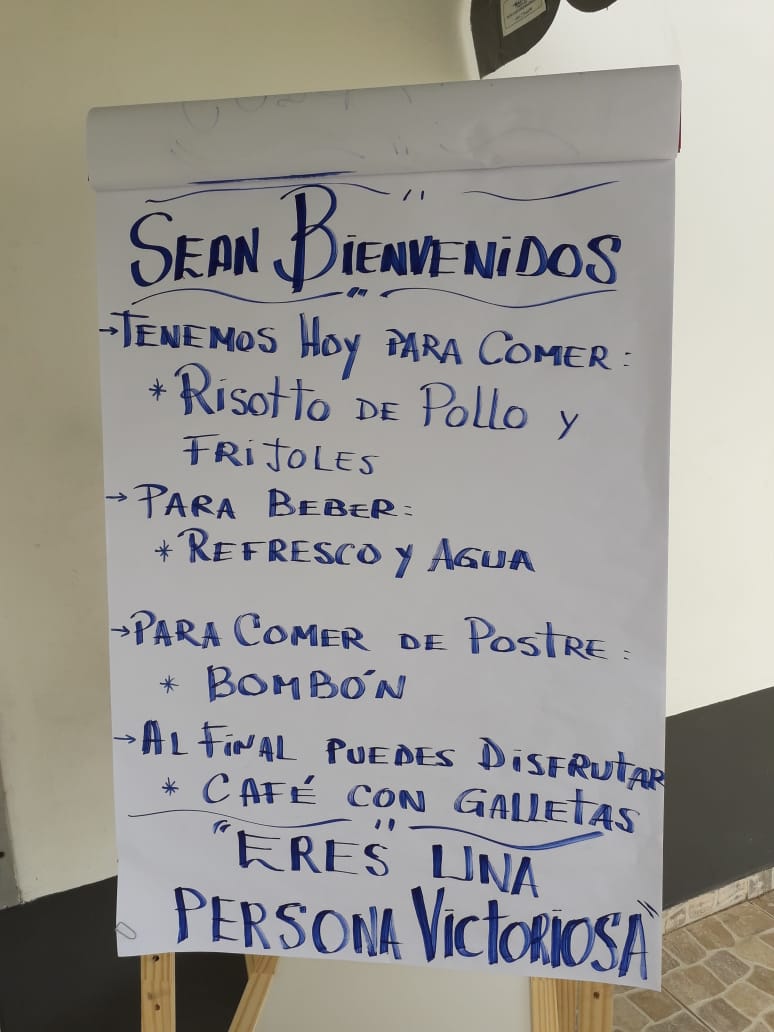 SEAN BIENVENIDOS
→TENEMOS HOY PARA COMER:
* RISOTTO DE POLLO Y
FRIJOLES
→ PARA BEBER:
* REFRESCO Y AGUA
→PARA COMER DE POSTRE:
* BOMBÓN
→ AL FINAL PUEDES DISFRUTAR
* CAFÉ CON GALLETAS
"ERES UNA
PERSONA VICTORIOSA"